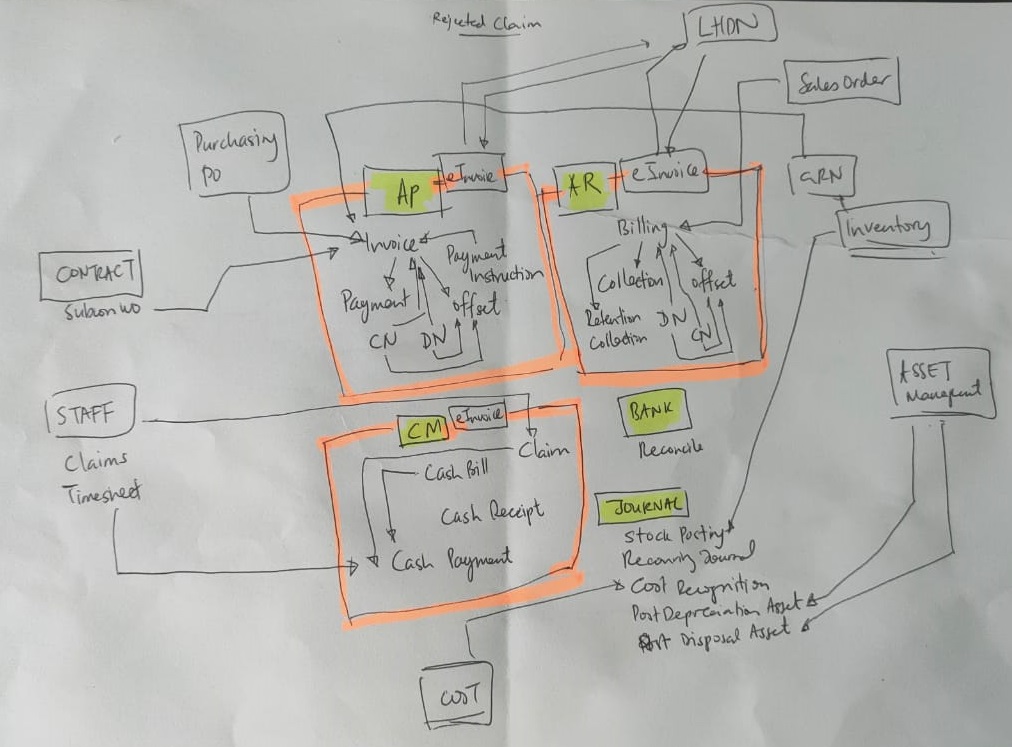 Rejected Claim
LHDN
Sales Order
Purchasing
PO
AP
eInvoice
AR
eInvoice
GRN
Inventory
CONTRACT
Subcon WO
Invoice
Payment
Instruction
Payment
offset
CN
DN
Billing
Collection
offset
Retention
Collection
DN
CN
ASSET
STAFF
Claims
Timesheet
CM
eInvoice
Claim
Cash Bill
Cash Receipt
Cash Payment
BANK
Reconcile
JOURNAL
Stock Posting
Cost Recognition
Post Depreciation Asset
Post Disposal Asset
COST